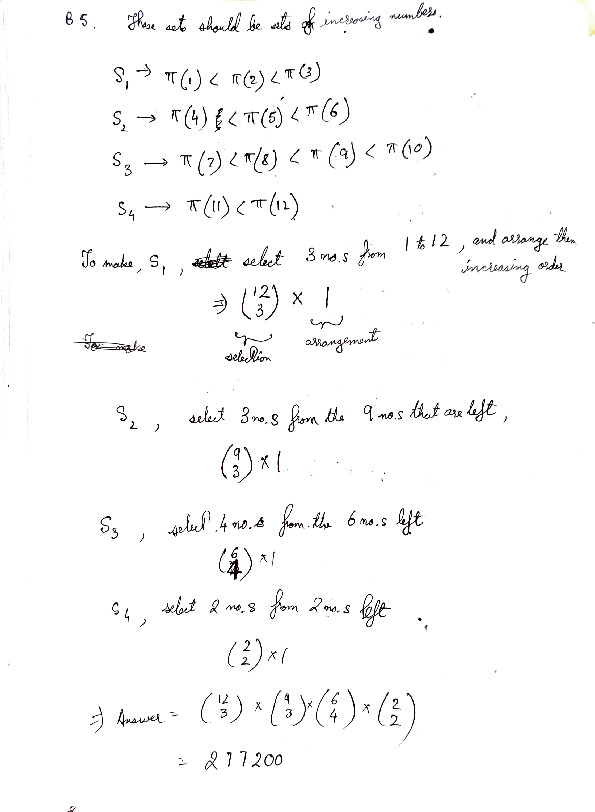 B5. These sets should be sets of increasing numbers.
S₁ → π(1) < π(2) < π(3)
S₂ → π(4) < π(5) < π(6)
S₃ → π(7) < π(8) < π(9) < π(10)
S₄ → π(11) < π(12)
To make, S₁, select 3 no.s from 1 to 12, and arrange them
increasing order
⇒ (12 3) × 1
selection arrangement
To make
S₂, select 3 no.s from the 9 no.s that are left,
(9 3) × 1
S₃, select 4 no.s from the 6 no.s left
(6 4) × 1
S₄, select 2 no.s from 2 no.s left.
(2 2) × 1
⇒ Answer = (12 3) × (9 3) × (6 4) × (2 2)
= 277200